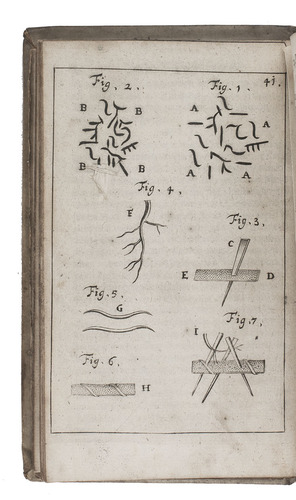 41.
Fig. 2. Fig. 1.
B B A A
B B A A
Fig. 4.
F
Fig. 3.
C
E D
Fig. 5.
G
Fig. 7.
I
Fig. 6.
H